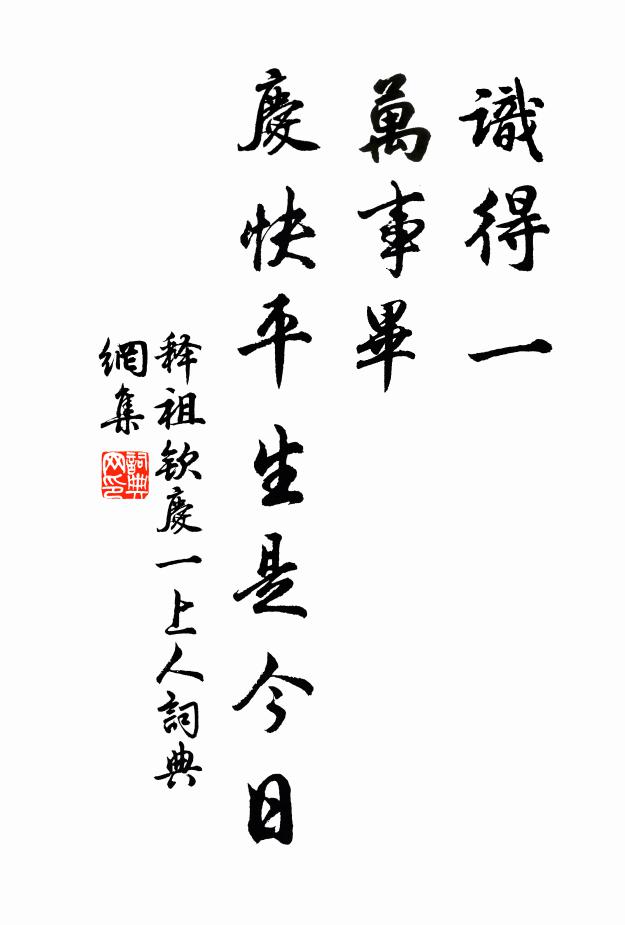 識得一
萬事畢
慶快平生是今日
释祖钦慶一上人詞典
網集
詞典
网印